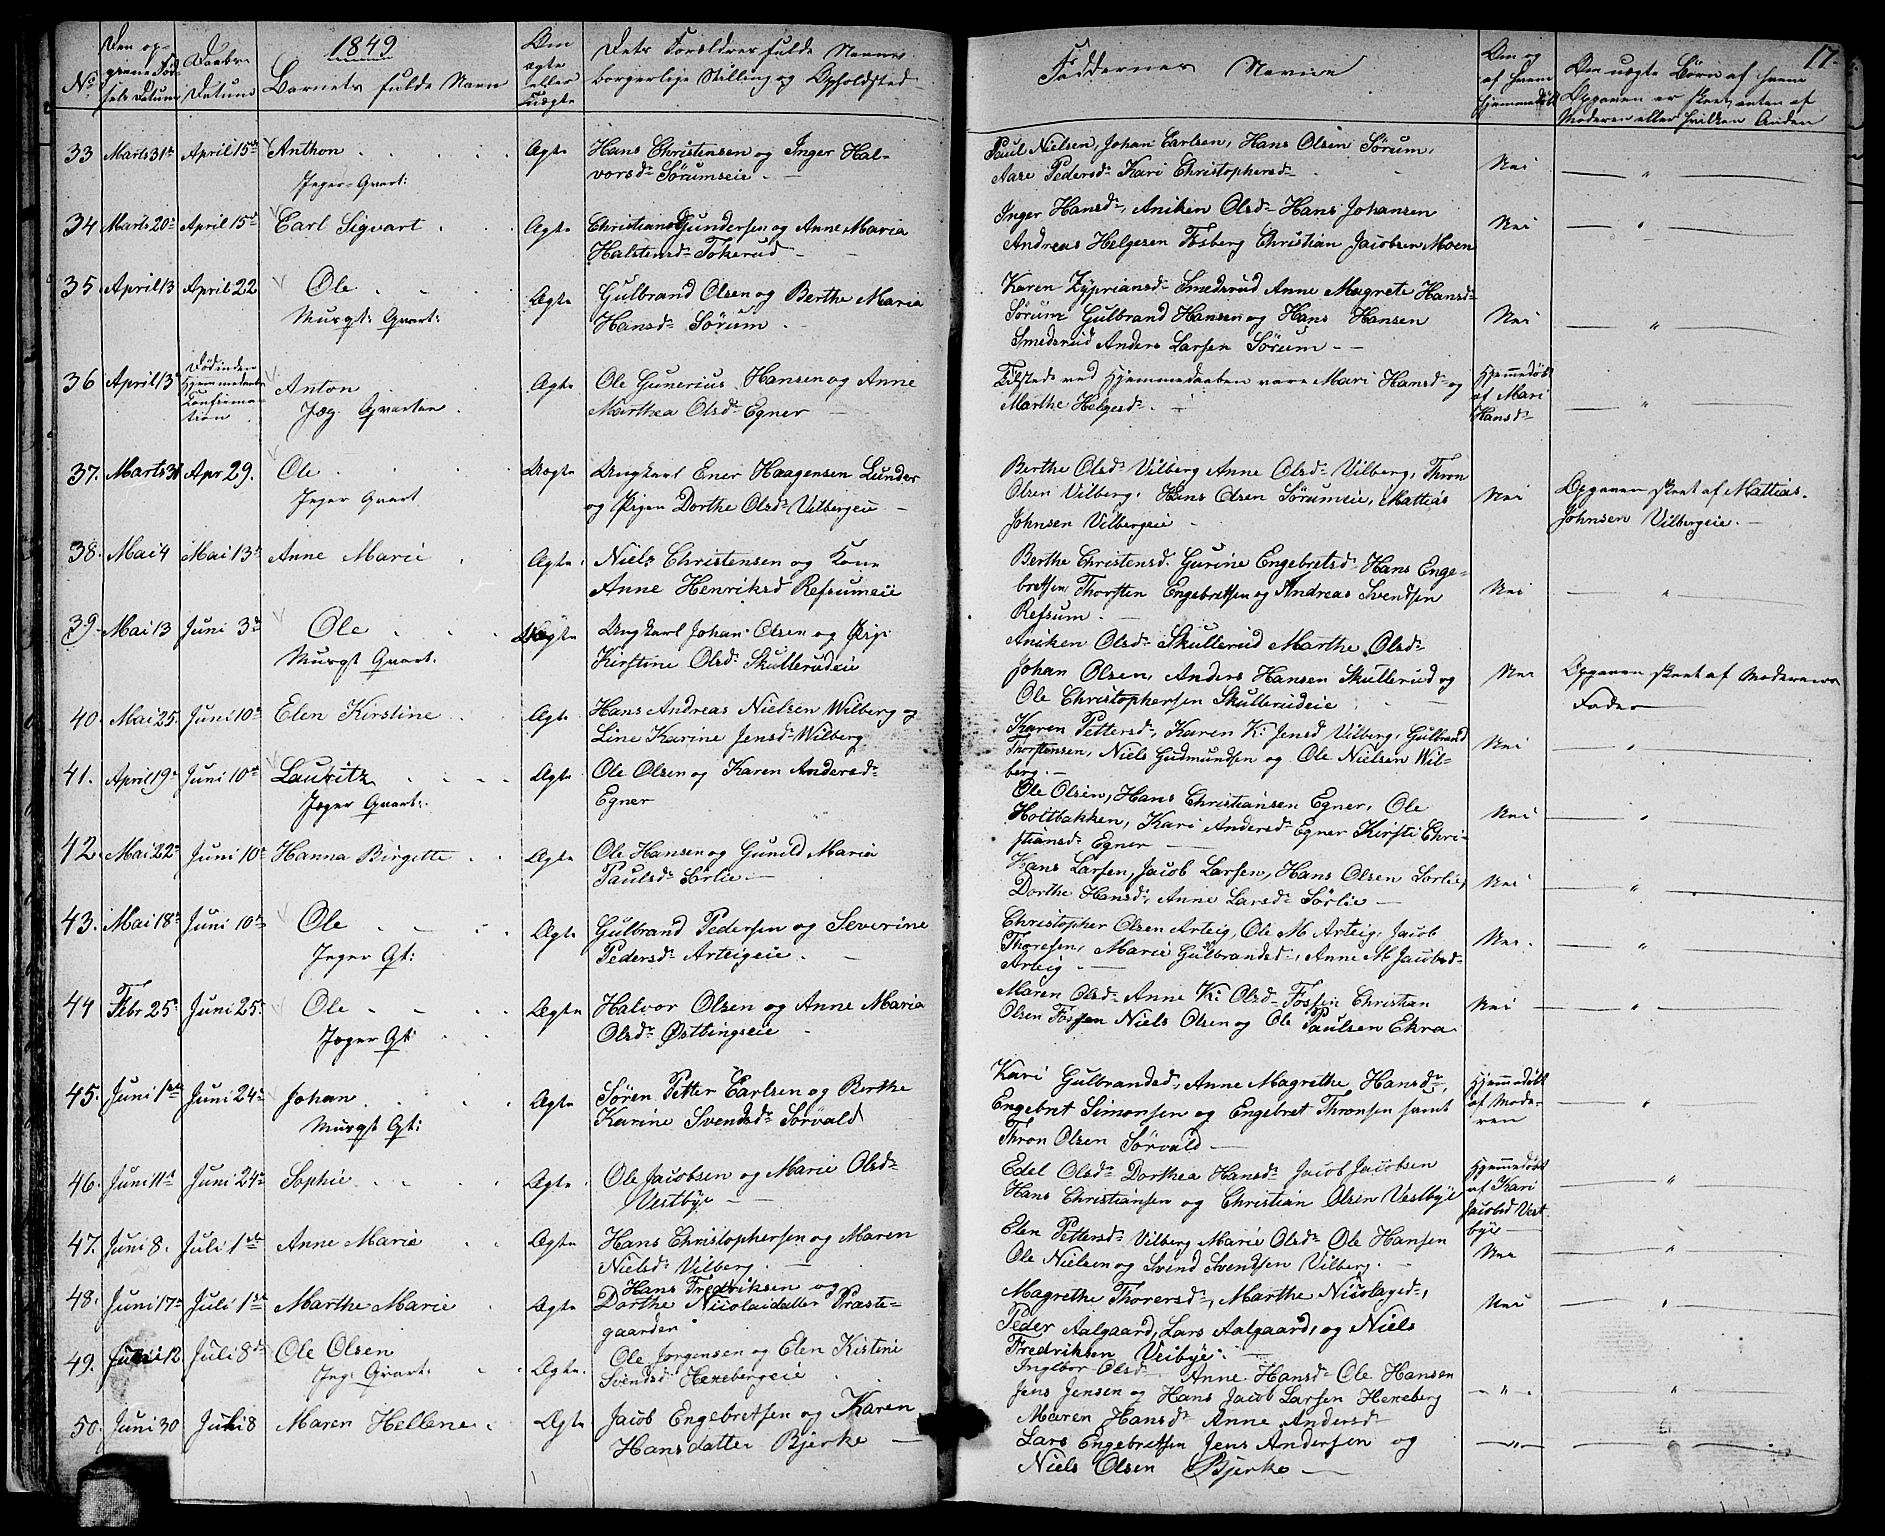 1849
17.
No
Den op-
givne Fød-
sels Datum
Daabs-
Datum
Barnets fulde Navn
Om
ægte
eller
Uægte
Dets Forældres fulde Navne
borgerlige Stilling og Opholdsted
Faddernes Navne
Om og
af hvem
hjemmedøbt
Om uægte Børn af hvem
Opgaven er skeet, enten af
Moderen eller hvilken Anden
33 Marts 31te April 15de Anthon Ægte Hans Christensen og Inger Hal-
vorsdr Sørumseie.
Jæger-Qvart:
Paul Nielsen, Johan Carlsen, Hans Olsen Sørum,
Aase Pedersdr Kari Christophersdr
Nei "
34 Marts 20de April 15de Carl Sigvart Ægte Christian Gundersen og Anne Maria
Halstensdr Tokerud
Inger Hansdr, Aniken Olsdr Hans Johansen
Andreas Helgesen Fosberg Christian Jacobsen Moen
Nei "
35 April 13 April 22 Ole Ægte Gulbrand Olsen og Berthe Maria
Hansdr Sørum
Murgst: Qvart:
Karen Zypriansdr Smedsrud Anne Magrete Hansdr
Sørum Gulbrand Hansen og Hans Hansen
Smedsrud Anders Larsen Sørum
Nei "
36 April 13de Død inden
Hjemmedaabs
Confirma-
tion
Anton Ægte Ole Gunerius Hansen og Anne
Marthea Olsdr Egner
Jæg. Qvarten.
Tilstede ved Hjemmedaaben vare Mari Hansdr og
Marthe Helgesdr
Hjemmedøbt
af Mari
Hansdr
"
37. Marts 31 Apr 29. Ole Uægte Ungkarl Ener Haagensen Lunder
og Pigen Dorthe Olsdr Vilbergeie
Jeger Qvart
Berthe Olsdr Vilberg Anne Olsdr Vilberg, Thron
Olsen Vilberg, Hans Olsen Sørumeie, Mattias
Johnsen Vilbergeie
Nei Opgaven skeet af Mattias
Johnsen Vilbergeie.
38. Mai 4 Mai 13de Anne Marie Ægte Niels Christensen og Kone
Anne Henriksd Refsumeie
Berthe Christensd. Gurine Engebretsd Hans Enge-
bretsen, Thorsten Engebretsen og Andreas Svendsen
Refsum
Nei "
39. Mai 13 Juni 3de Ole Uægte Ungkarl Johan Olsen og Pige
Kirstine Olsdr Skullerudeie
Murgst Qvart.
Aniken Olsdr Skullerud Marthe Olsdr
Johan Olsen, Anders Hansen Skullerud og
Ole Christophersen Skullerudeie
Nei Opgaven skeet af Moderens
Fader
40. Mai 25. Juni 10de Elen Kirstine Ægte Hans Andreas Nielsen Wilberg og
Line Karine Jensdr Wilberg
Karen Pettersdr, Karen K. Jensd Vilberg, Gulbrand
Thorstensen, Niels Gudmundsen og Ole Nielsen Wil-
berg.
Nei "
41. April 19de Juni 10de Lauritz Ægte Ole Olsen og Karen Andersdr
Egner
Jæger Qvart:
Ole Olsen, Hans Christiansen Egner, Ole
Holtbakken, Kari Andersd Egner Kirsti Chri-
stiansd Egner
Nei "
42. Mai 22de Juni 10de Hanna Birgitte Ægte Ole Hansen og Gunild Maria
Paulsdr Sørlie
Hans Larsen, Jacob Larsen, Hans Olsen Sørlie,
Dorthe Hansdr, Anne Larsdr Sørlie
Nei "
43. Mai 18de Juni 10de Ole Ægte Gulbrand Pedersen og Severine
Pedersdr Arteigeie.
Jeger Qt:
Christopher Olsen Arteig, Ole M Arteig, Jacob
Thoresen, Marie Gulbrandsd, Anne M Jacobsd
Arteig
Nei. "
44 Febr 25de Juni 25. Ole Ægte Halvor Olsen og Anne Maria
Olsdr Østbingseie
Jæger Qt
Maren Olsdr Anne K: Olsdr Fossen Christian
Olsen Fossen Niels Olsen og Ole Paulsen Ekra
Nei "
45. Juni 1ste Juni 24de Johan Ægte Søren Petter Carlsen og Berthe
Karine Svendsdr Sørvald
Murgst Qt:
Kari Gulbrandsd, Anne Magrethe Hansdr,
Engebret Simonsen og Engebret Thronsen samt
Thron Olsen Sørvald
Hjemmedøbt
af Mode-
ren
"
46. Juni 11te Juni 24de Sophie Ægte Ole Jacobsen og Marie Olsdr
Vestbye
Edel Olsdr Dorthea Hansdr Jacob Jacobsen
Hans Christiansen og Christian Olsen Vestbye
Hjemmedøbt
af Kari
Jacobsd Vest-
bye
"
47. Juni 8. Juli 1ste Anne Marie Ægte Hans Christophersen og Maren
Nielsdr Vilberg
Elen Pettersdr Vilberg Marie Olsdr Ole Hansen
Ole Nielsen og Svend Svendsen Vilberg.
Nei "
48. Juni 17de Juli 1ste Marthe Marie Ægte Hans Fredriksen og
Dorthe Nicolaidatter Præste-
gaarden
Magrethe Thorersdr, Marthe Nicolaysdr,
Peder Aalgaard, Lars Aalgaard, og Niels
Fredriksen Veibye.
Nei "
49. Juni 12 Juli 8de Ole Olsen Ægte Ole Jørgensen og Elen Kistine
Svendsd Hexebergeie
Ing: Qvart.
Ingebor Olsdr Anne Hansdr Ole Hansen
Jens Jensen og Hans Jacob Larsen Hexeberg
" "
50. Juni 30 Juli 8 Maren Hellene Ægte Jacob Engebretsen og Karen
Hansdatter Bjerke
Maren Hansdr Anne Andersdr
Lars Engebretsen Jens Andersen og
Niels Olsen Bjerke
" "